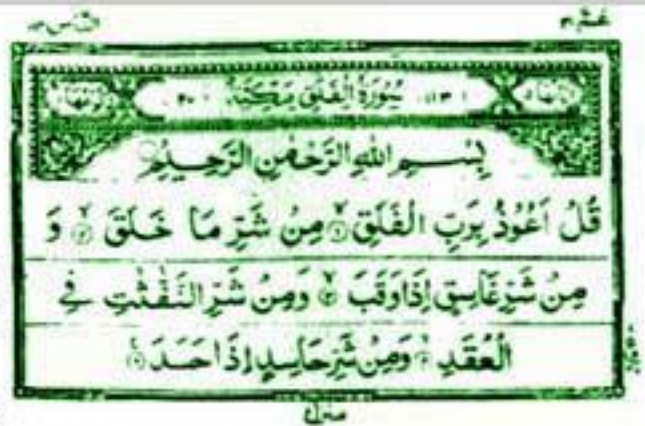 عم ٣٠
الناس ١١٤
(١١٣) سُوْرَةُ الْفَلَقِ مَكِّيَّةٌ (٢٠)
بِسْمِ اللهِ الرَّحْمٰنِ الرَّحِيْمِ
قُلْ اَعُوْذُ بِرَبِّ الْفَلَقِ ۙ۱ مِنْ شَرِّ مَا خَلَقَ ۙ۲ وَ
مِنْ شَرِّ غَاسِقٍ اِذَا وَقَبَ ۙ۳ وَمِنْ شَرِّ النَّفّٰثٰتِ فِي
الْعُقَدِ ۙ۴ وَمِنْ شَرِّ حَاسِدٍ اِذَا حَسَدَ ۵
منزل